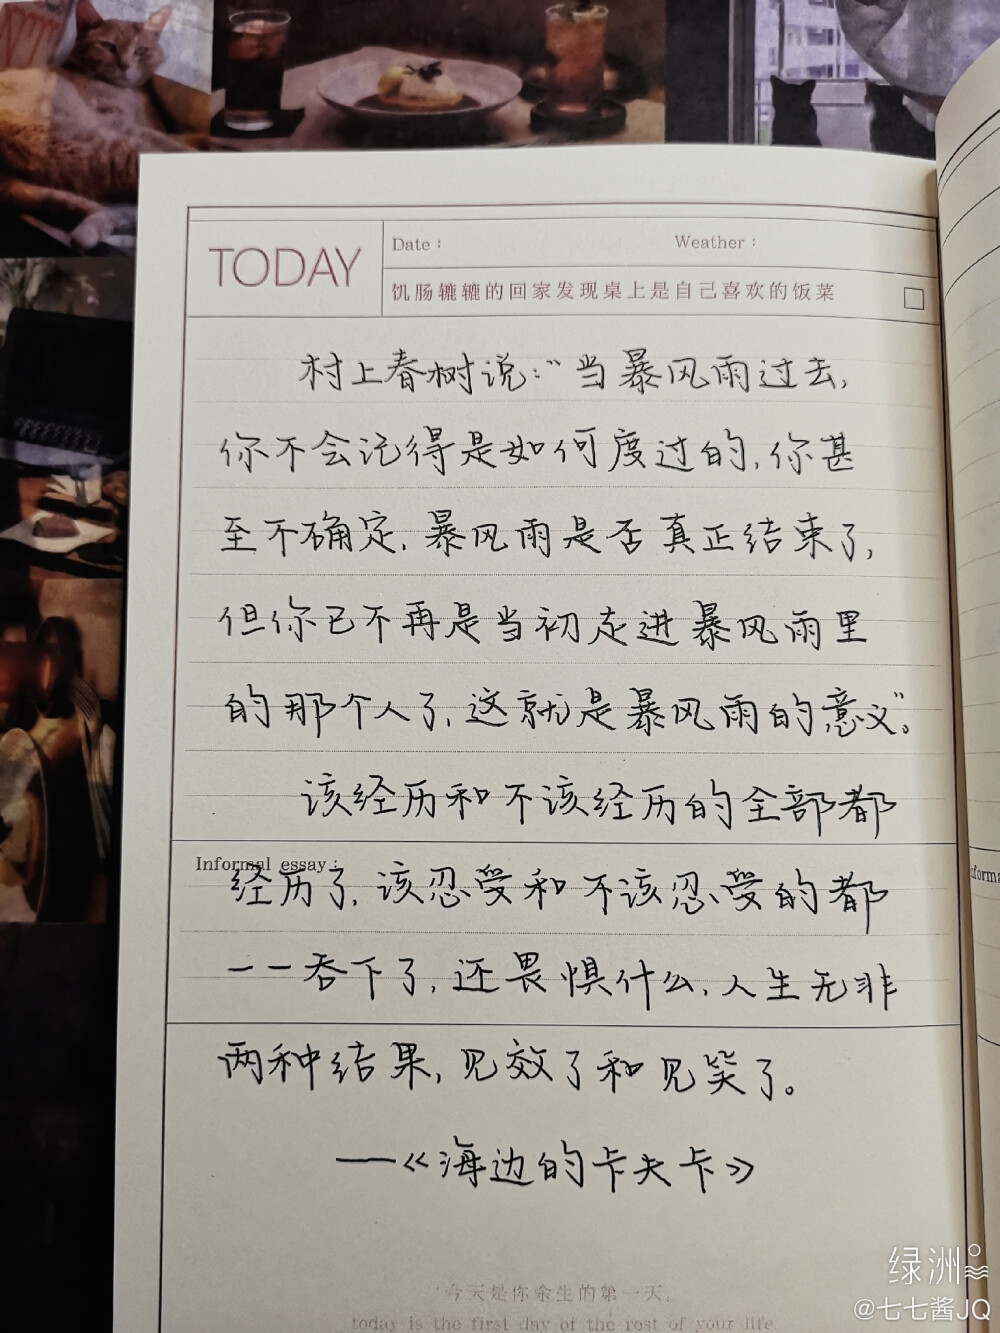 TODAY
Date：
Weather：
饥肠辘辘的回家发现桌上是自己喜欢的饭菜
村上春树说："当暴风雨过去,
你不会记得是如何度过的,你甚
至不确定,暴风雨是否真正结束了,
但你已不再是当初走进暴风雨里
的那个人了,这就是暴风雨的意义"。
该经历和不该经历的全部都
Informal essay：
经历了,该忍受和不该忍受的都
一一吞下了,还畏惧什么,人生无非
两种结果,见效了和见笑了。
——《海边的卡夫卡》
今天是你余生的第一天,
today is the first day of the rest of your life.
绿洲
@七七酱JQ